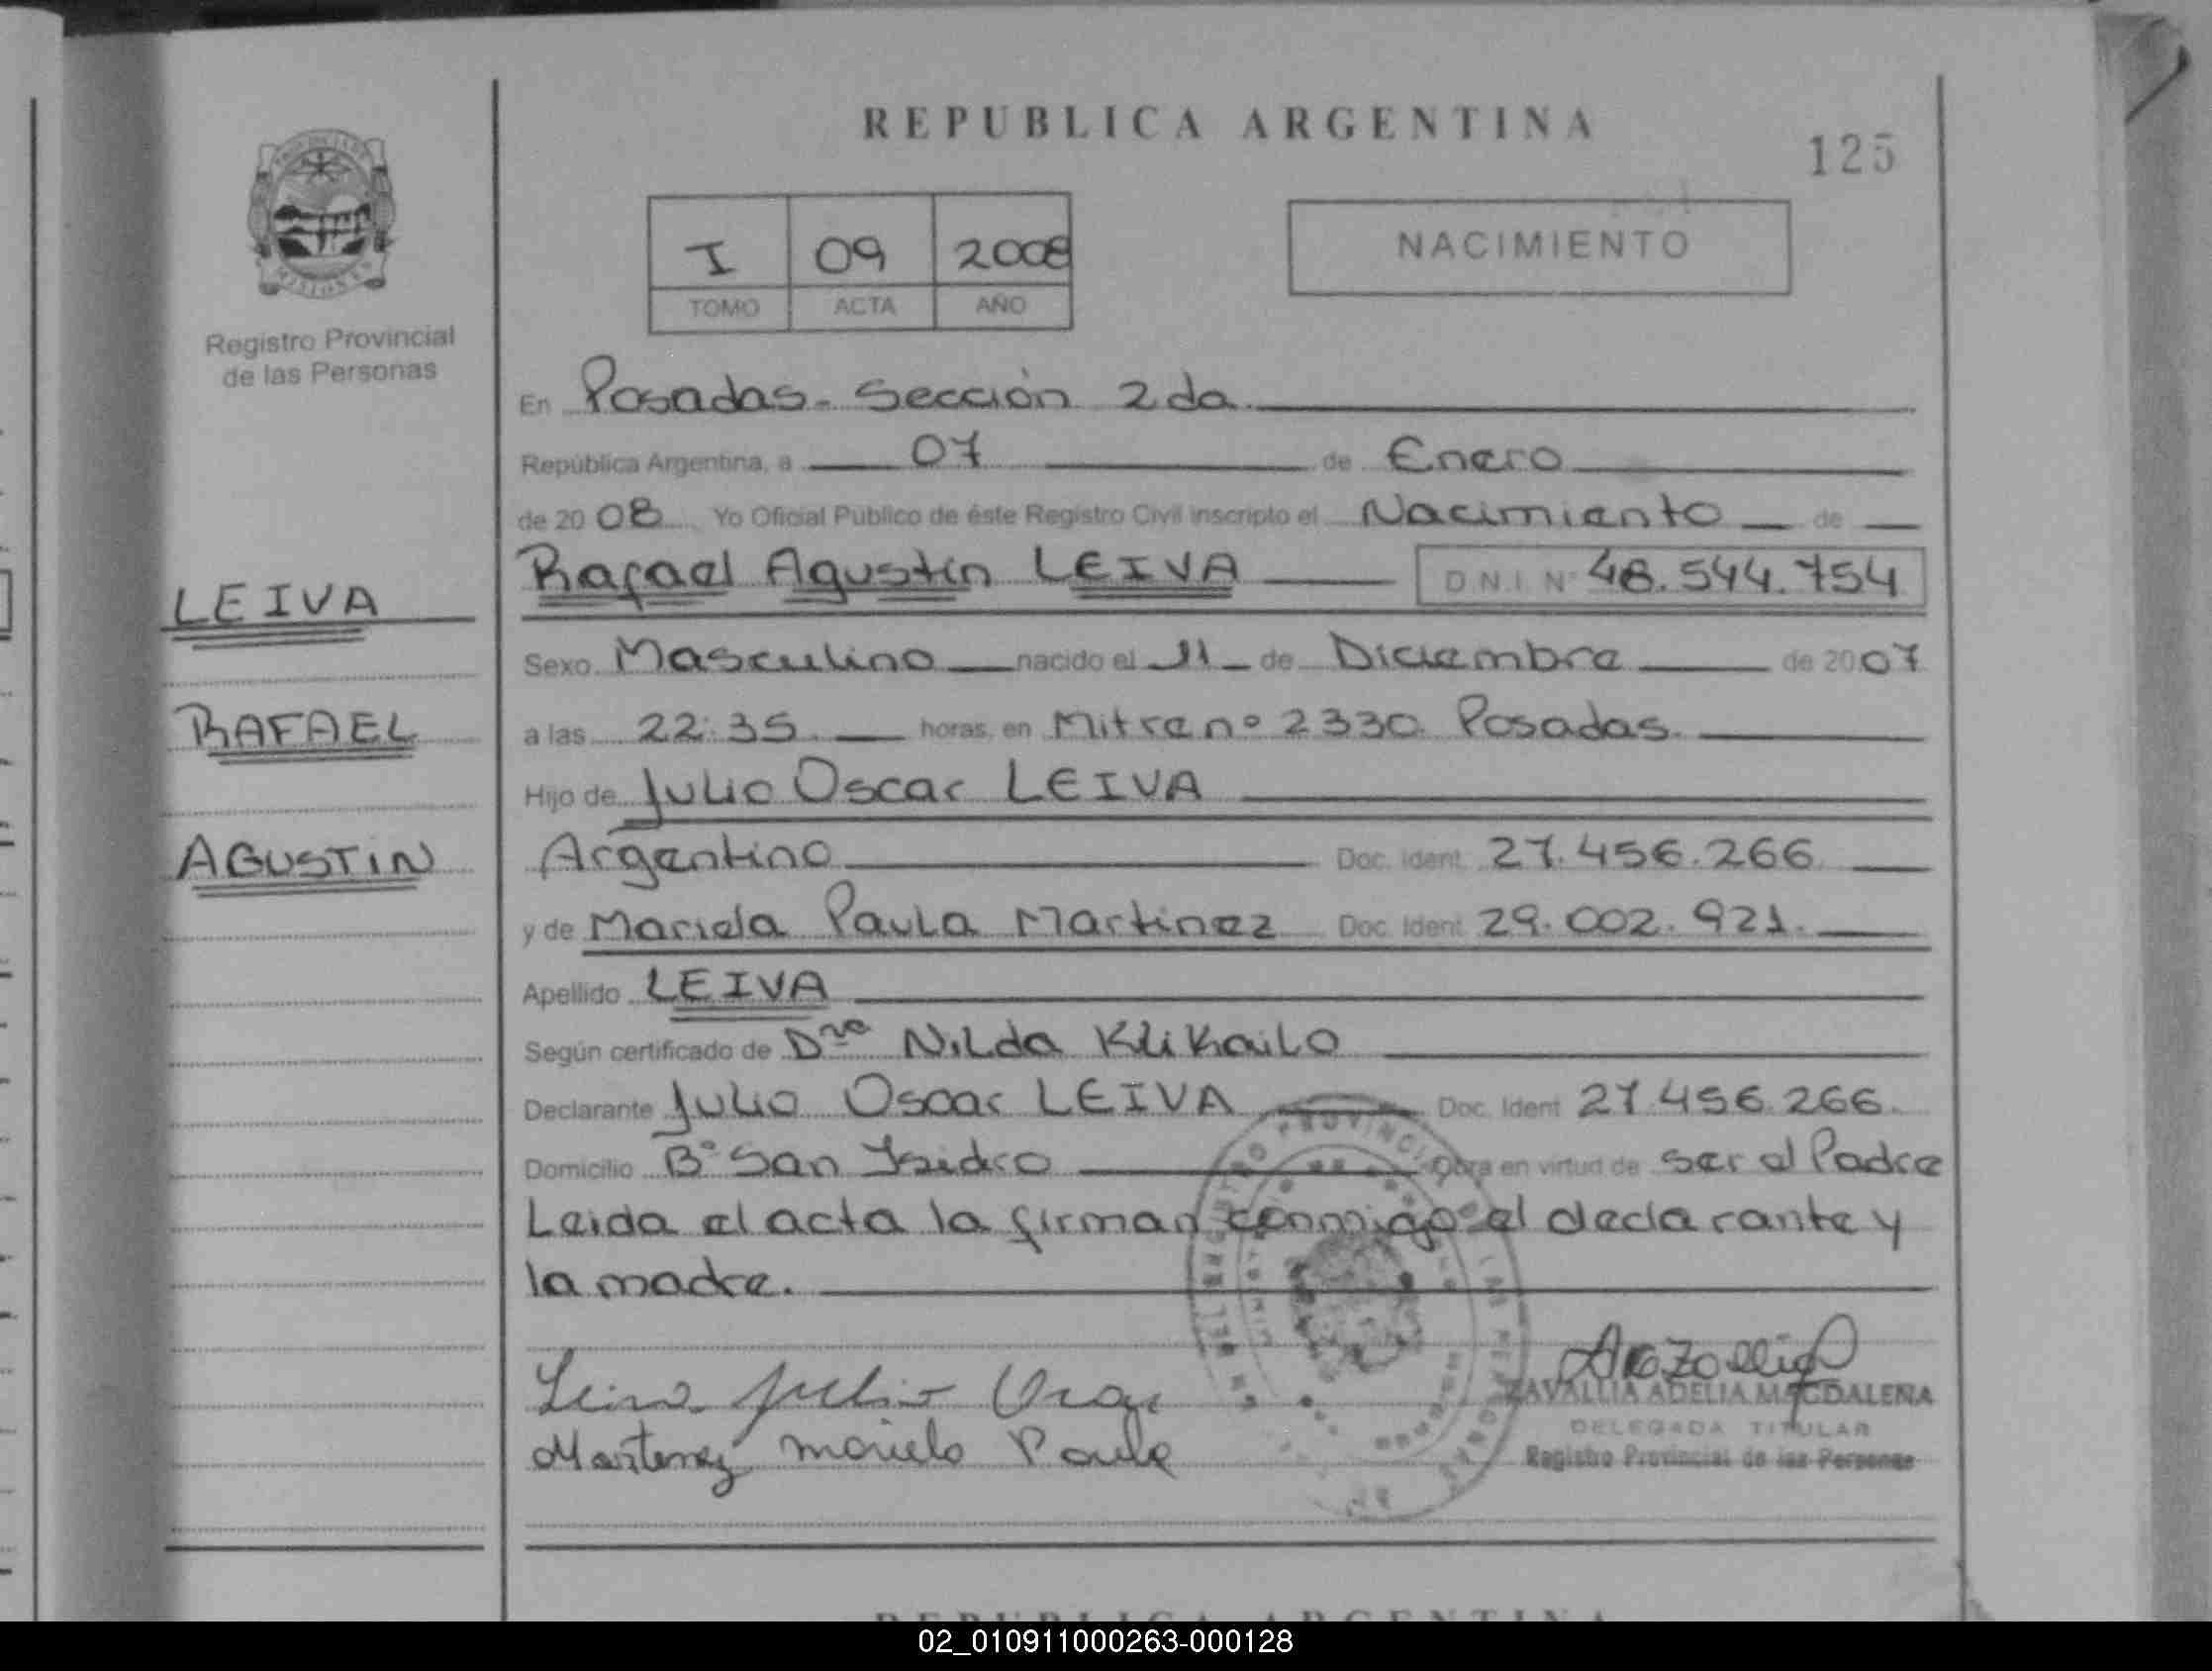 REPUBLICA ARGENTINA
125
I 09 2008
TOMO ACTA AÑO
NACIMIENTO
Registro Provincial
de las Personas
LEIVA
RAFAEL
AGUSTIN
En Posadas - Sección 2da
República Argentina, a 07 de Enero
de 2008 Yo Oficial Público de éste Registro Civil inscripto el Nacimiento de
Rafael Agustín LEIVA D.N.I. Nº 48.544.754
Sexo Masculino nacido el 11 de Diciembre de 2007
a las 22:35 horas, en Mitre nº 2330 Posadas.
Hijo de Julio Oscar LEIVA
Argentino Doc. Ident. 27.456.266
y de Mariela Paula Martinez Doc. Ident. 29.002.921.
Apellido LEIVA
Según certificado de Dra Nilda Klikailo
Declarante Julio Oscar LEIVA Doc. Ident 27.456.266.
Domicilio Bº San Isidro Obra en virtud de ser el Padre
Leida el acta la firman conmigo el declarante y
la madre.
Leiva Julio Oscar
Martinez Mariela Paula
ZAVALLIA ADELIA MAGDALENA
DELEGADA TITULAR
Registro Provincial de las Personas
REPUBLICA ARGENTINA
02_010911000263-000128